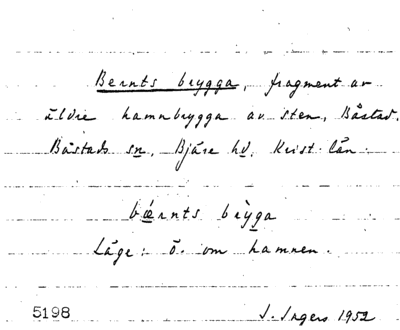 Bernts brygga, fragment av
äldre hamnbrygga av sten, Båstad.
Båstads sn. Bjäre hd. Krist. län.
bærnts brỳga
Läge: ö. om hamnen.
5198 I. Ingers 1952